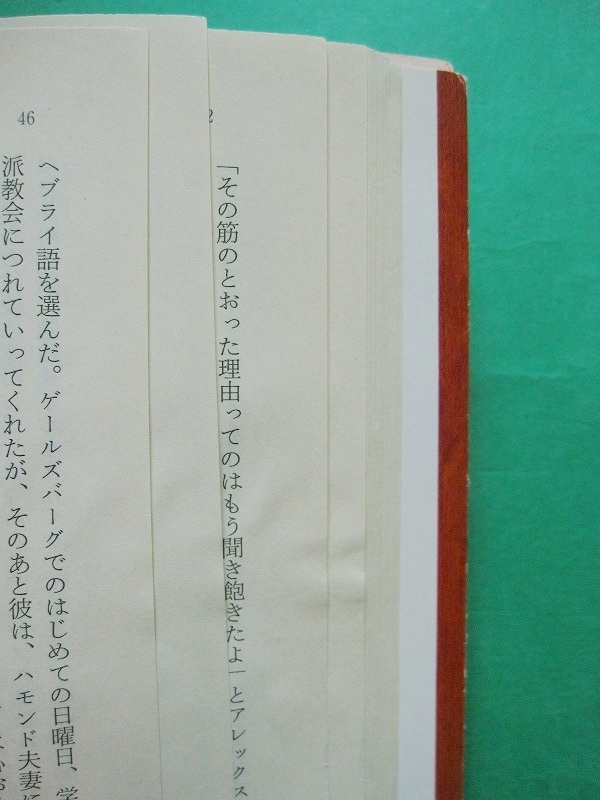 46
2
「その筋のとおった理由ってのはもう聞き飽きたよ」とアレックス
ヘブライ語を選んだ。ゲールズバーグでのはじめての日曜日、学
派教会につれていってくれたが、そのあと彼は、ハモンド夫妻に